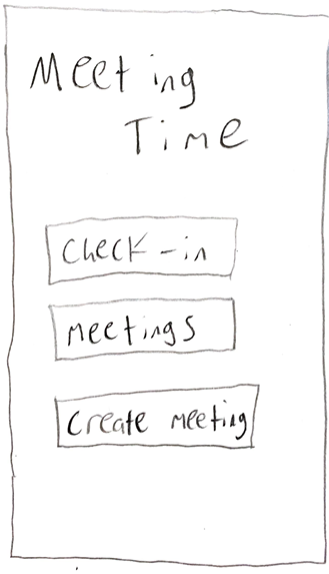 Meeting
Time
Check-in
Meetings
Create Meeting